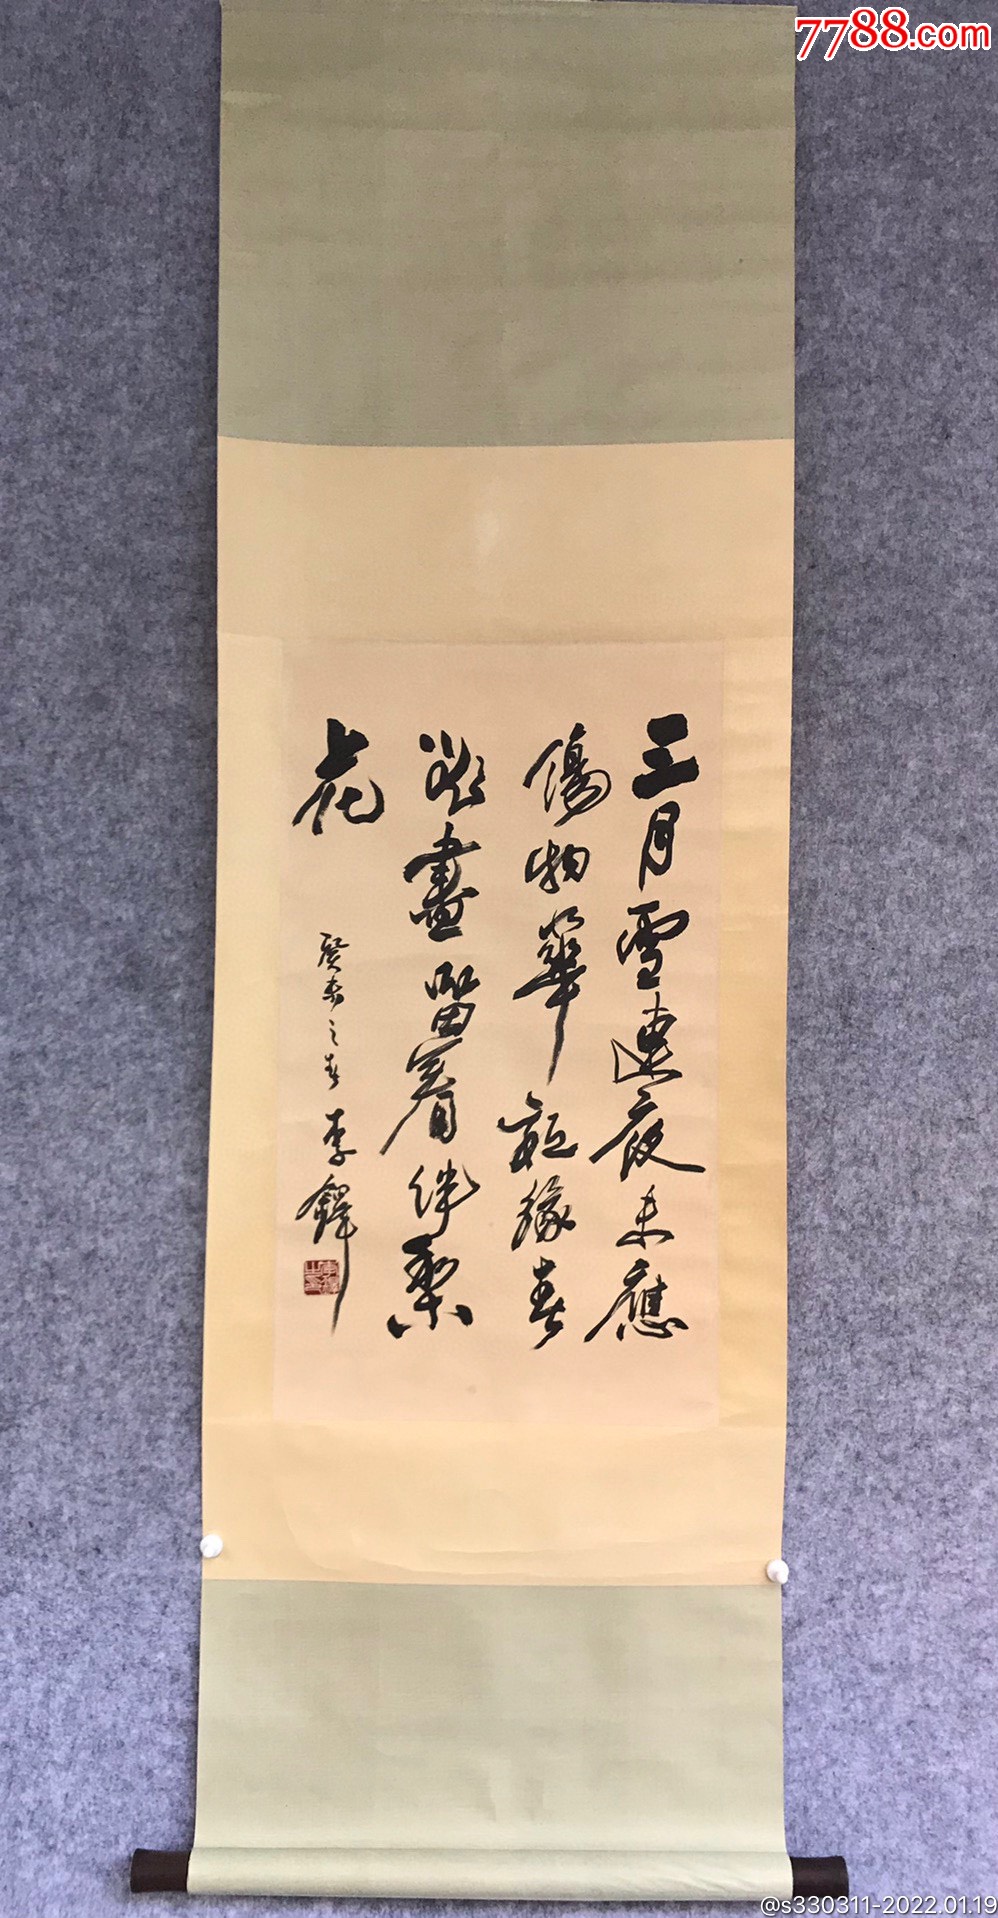 7788.com
三月雪連夜未應
傷物華 祗緣春
欲盡留着伴梨
花
癸未之春 李鐸
@s330311-2022.01.19